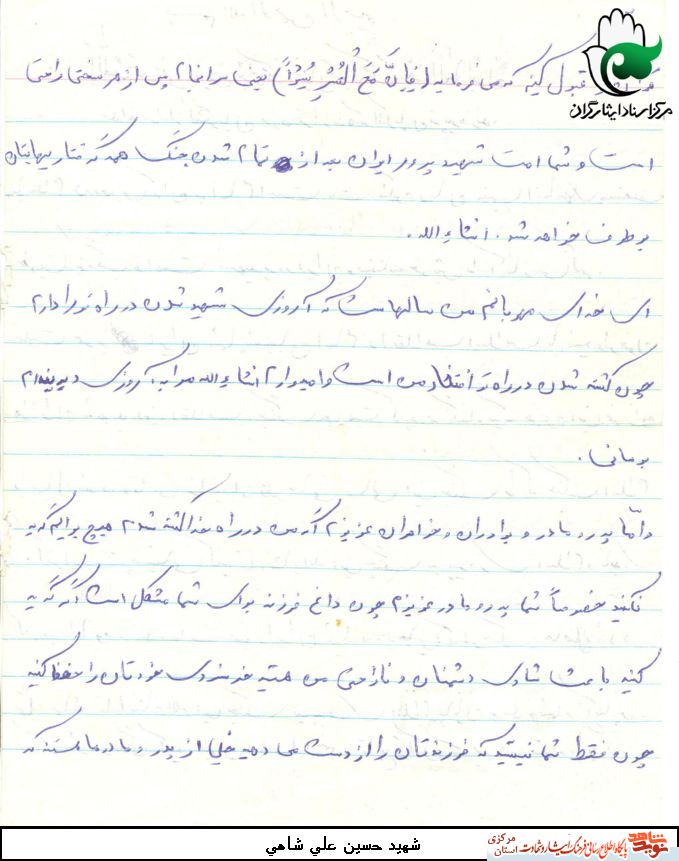 قبول کنید که می فرماید (فَاِنَّ مَعَ الْعُسْرِ یُسْراً) یعنی سرانجام پس از هر سختی راحتی
مرکز اسناد ایثارگران
است و شما امت شهید پرور ایران بعد از تمام شدن جنگ همه گرفتاریهایتان
برطرف خواهد شد. انشاءالله.
ای خدای مهربانم من سالهاست که آرزوی شهید شدن در راه تو را دارم
چون کشته شدن در راه تو افتخار من است و امیدوارم انشاءالله مرا به آرزوی دیرینه ام
برسانی.
و امّا پدر و مادر و برادران و خواهران عزیزم اگر من در راه خدا کشته شدم هیچ برایم گریه
نکنید خصوصاً شما پدر و مادر عزیزم چون داغ فرزند برای شما مشکل است اگر گریه
کنید باعث شادی دشمنان و ناراحتی من هستید خونسردی خودتان را حفظ کنید
چون فقط شما نیستید که فرزندتان را از دست می دهید خیلی از پدر و مادرها هستند که
شهید حسین علي شاهي
نوید شاهد
پایگاه اطلاع رسانی فرهنگ ایثار و شهادت
استان مرکزی